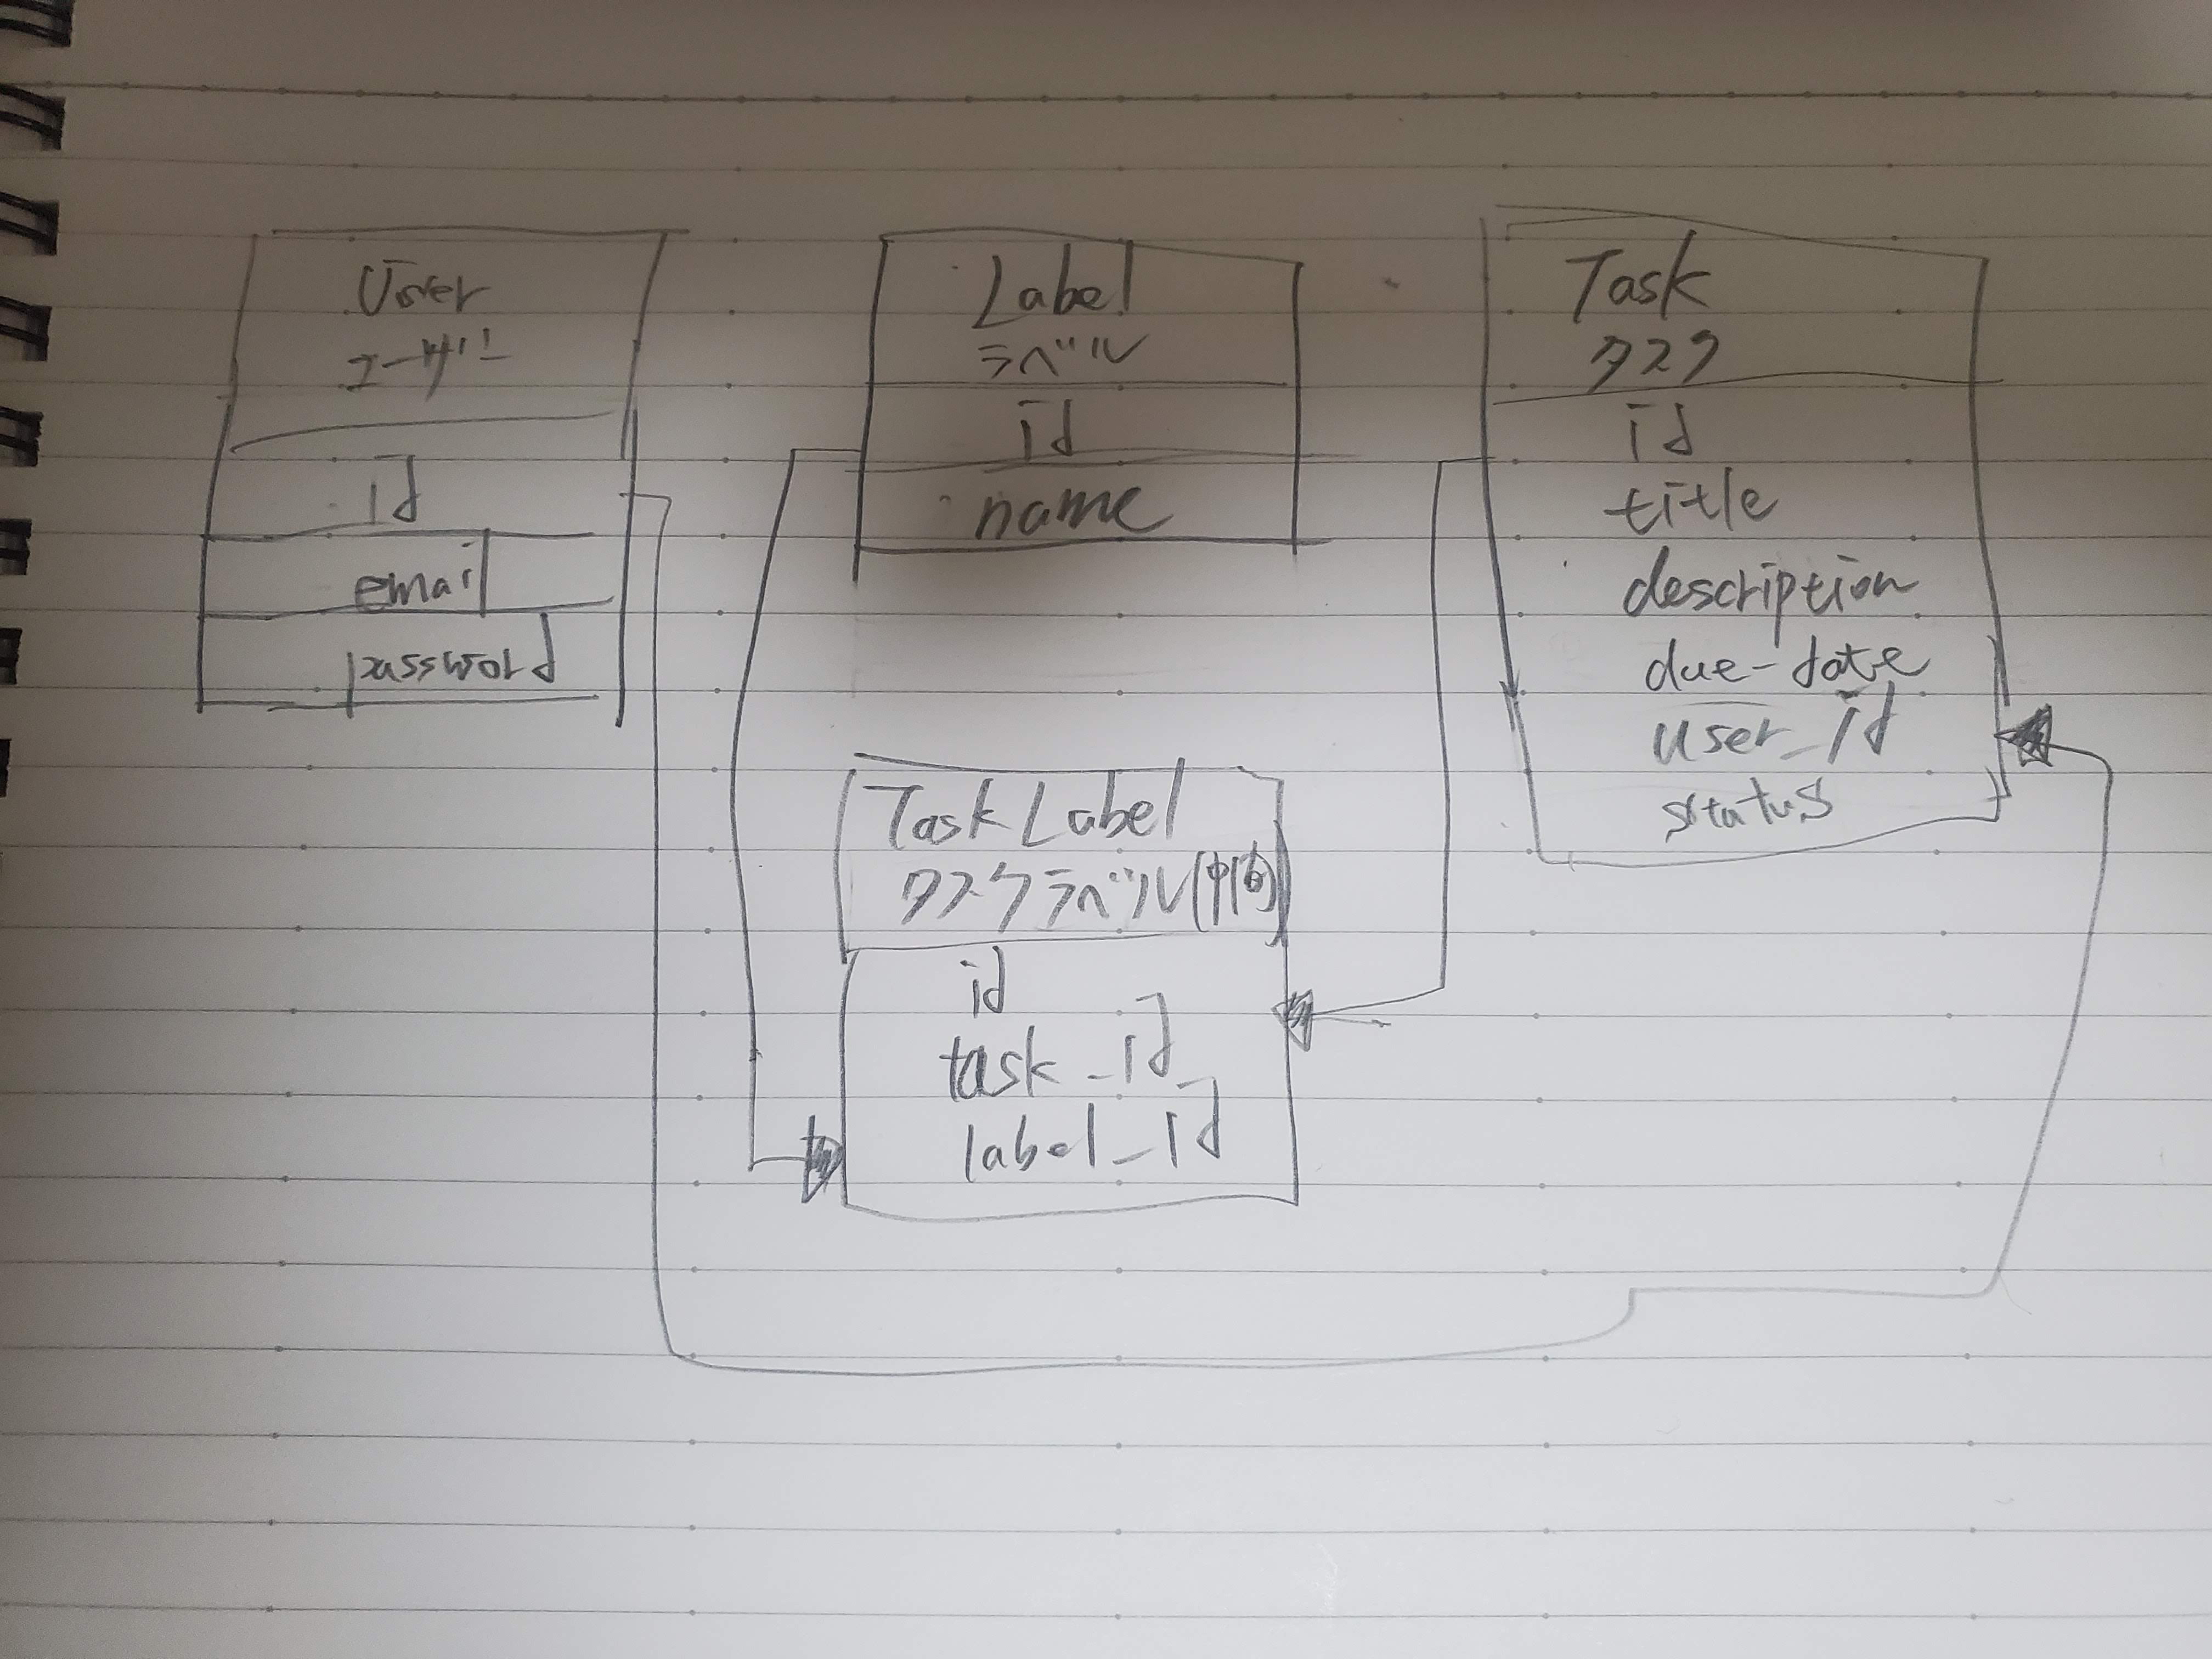 User
ユーザー
id
email
password
Label
ラベル
id
name
Task
タスク
id
title
description
due-date
user_id
status
TaskLabel
タスクラベル(中間)
id
task_id
label_id